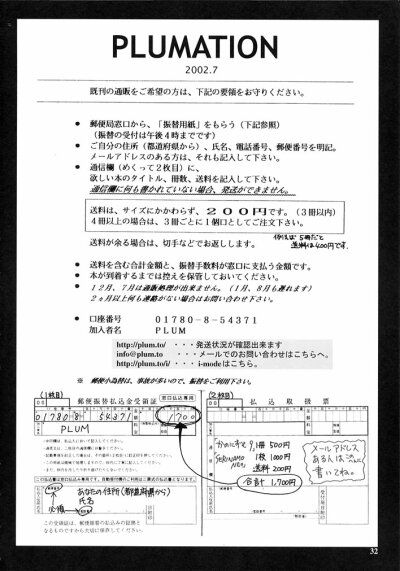 PLUMATION
2002.7
既刊の通販をご希望の方は、下記の要領をお守りください。
● 郵便局窓口から、「振替用紙」をもらう（下記参照）
（振替の受付は午後４時までです）
● ご自分の住所（都道府県から）、氏名、電話番号、郵便番号を明記。
メールアドレスのある方は、それも記入して下さい。
● 通信欄（めくって２枚目）に、
欲しい本のタイトル、冊数、送料を記入して下さい。
通信欄に何も書かれていない場合、発送ができません。
送料は、サイズにかかわらず、２００円です。（３冊以内）
４冊以上の場合は、３冊ごとに１個口としてご注文下さい。
例えば5冊だと
送料は400円です。
送料が余る場合は、切手などでお返しします。
● 送料を含む合計金額と、振替手数料が窓口に支払う金額です。
● 本が到着するまでは控えを保管しておいてください。
● １２月、７月は通販処理が出来ません。（１月、８月も遅れます）
２ヵ月以上何も連絡がない場合はお問い合わせ下さい。
● 口座番号 01780-8-54371
加入者名 PLUM
http://plum.to/ ・・・発送状況が確認出来ます
info@plum.to ・・・メールでのお問い合わせはこちらへ。
http://plum.to/i/ ・・・i-modeはこちら。
※ 郵便小為替は、事故が多いので、振替をご利用下さい。
（1枚目）
郵便振替払込金受領証
窓口払込専用
01780 8 54371
1700
PLUM
あなたの住所（都道府県から）
氏名
必須
（2枚目）
払込取扱票
9冊 500円
1枚 1000円
送料 200円
合計 1,700円
メールアドレス
書いてね。
32